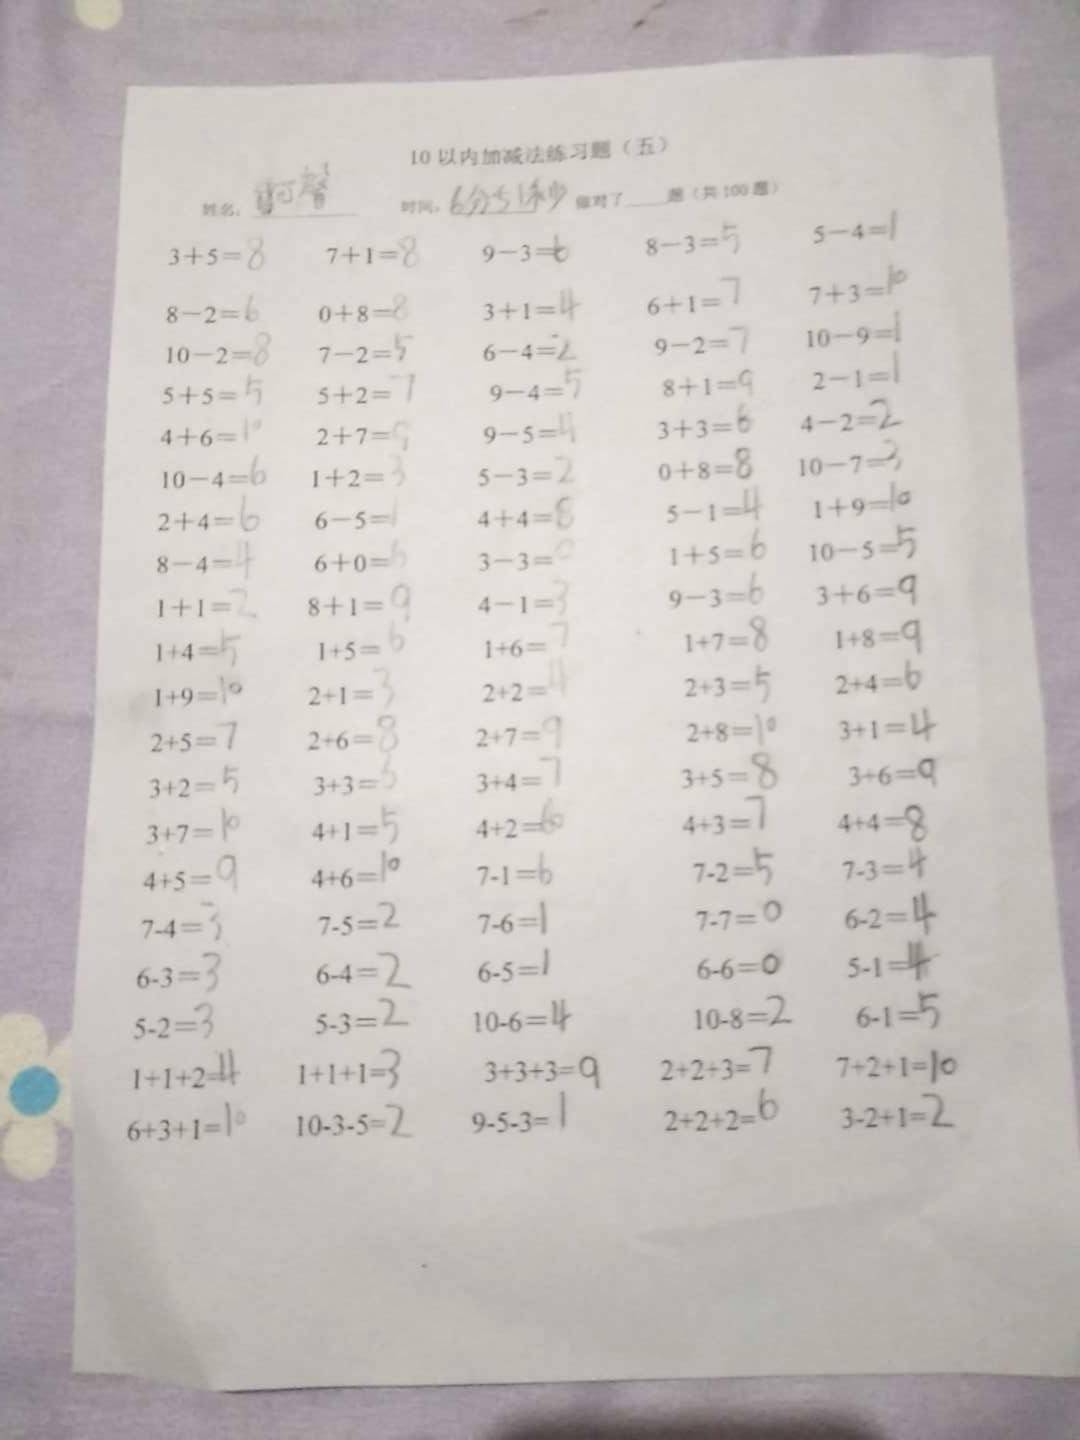 10以内加减法练习题（五）
姓名: 时间: 6分51秒 做对了____题（共100题）
3+5=8 7+1=8 9-3=6 8-3=5 5-4=1
8-2=6 0+8=8 3+1=4 6+1=7 7+3=10
10-2=8 7-2=5 6-4=2 9-2=7 10-9=1
5+5=5 5+2=7 9-4=5 8+1=9 2-1=1
4+6=10 2+7=9 9-5=4 3+3=6 4-2=2
10-4=6 1+2=3 5-3=2 0+8=8 10-7=3
2+4=6 6-5=1 4+4=8 5-1=4 1+9=10
8-4=4 6+0=6 3-3=0 1+5=6 10-5=5
1+1=2 8+1=9 4-1=3 9-3=6 3+6=9
1+4=5 1+5=6 1+6=7 1+7=8 1+8=9
1+9=10 2+1=3 2+2=4 2+3=5 2+4=6
2+5=7 2+6=8 2+7=9 2+8=10 3+1=4
3+2=5 3+3=6 3+4=7 3+5=8 3+6=9
3+7=10 4+1=5 4+2=6 4+3=7 4+4=8
4+5=9 4+6=10 7-1=6 7-2=5 7-3=4
7-4=3 7-5=2 7-6=1 7-7=0 6-2=4
6-3=3 6-4=2 6-5=1 6-6=0 5-1=4
5-2=3 5-3=2 10-6=4 10-8=2 6-1=5
1+1+2=4 1+1+1=3 3+3+3=9 2+2+3=7 7+2+1=10
6+3+1=10 10-3-5=2 9-5-3=1 2+2+2=6 3-2+1=2